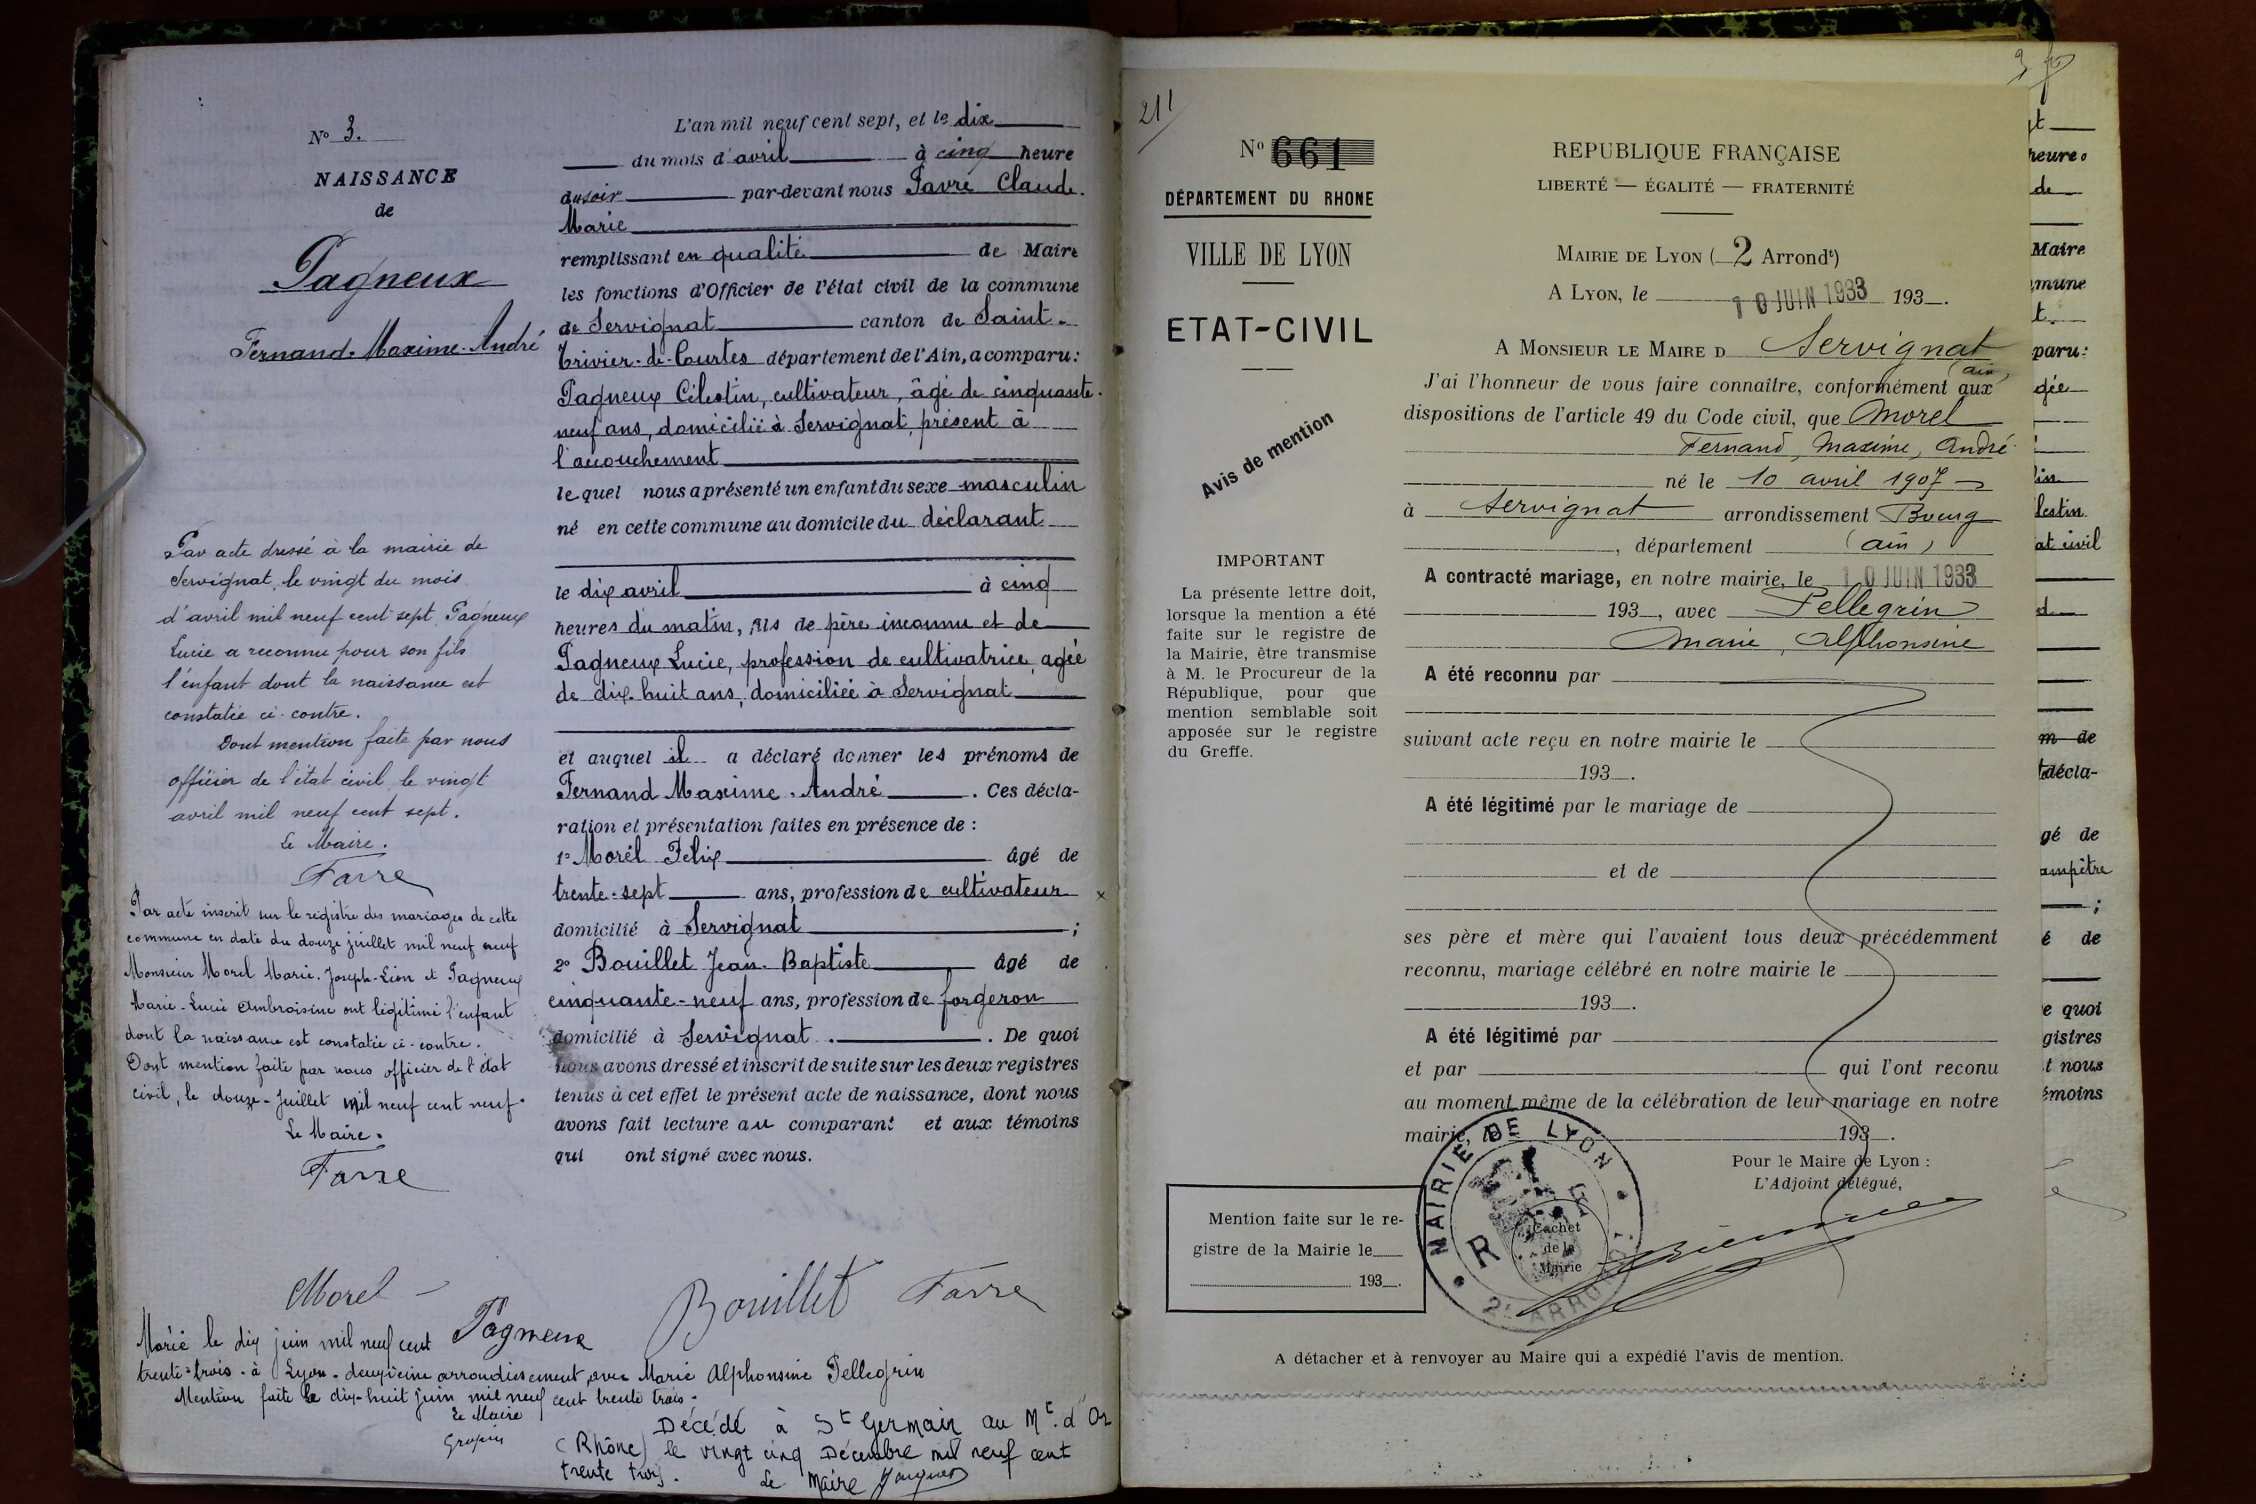 N° 3.
NAISSANCE
de
Pagneux
Fernand-Maxime-André
Par acte dressé à la mairie de
Servignat, le vingt du mois
d'avril mil neuf cent sept, Pagneux
Lucie a reconnu pour son fils
l'enfant dont la naissance est
constatée ci-contre.
Dont mention faite par nous
officier de l'état civil, le vingt
avril mil neuf cent sept.
Le Maire.
Favre
Par acte inscrit sur le registre des mariages de cette
commune en date du douze juillet mil neuf neuf
Monsieur Morel Marie-Joseph-Léon et Pagneux
Marie-Lucie Ambroisine ont légitimé l'enfant
dont la naissance est constatée ci-contre.
Dont mention faite par nous officier de l'état
civil, le douze-Juillet mil neuf cent neuf.
Le Maire.
Favre
L'an mil neuf cent sept, et le dix
du mois d'avril à cinq heure
du soir par-devant nous Favre Claude.
Marie
remplissant en qualité de Maire
les fonctions d'Officier de l'état civil de la commune
de Servignat canton de Saint-
Trivier-de-Courtes département de l'Ain, a comparu:
Pagneux Célestin, cultivateur, âgé de cinquante-
neuf ans, domicilié à Servignat, présent à
l'accouchement
lequel nous a présenté un enfant du sexe masculin
né en cette commune au domicile du déclarant
le dix avril à cinq
heures du matin, fils de père inconnu et de
Pagneux Lucie, profession de cultivatrice, agée
de dix-huit ans, domiciliée à Servignat
et auquel il a déclaré donner les prénoms de
Fernand Maxime-André. Ces décla-
ration et présentation faites en présence de:
1° Morél Félix âgé de
trente-sept ans, profession de cultivateur x
domicilié à Servignat;
2° Bouillet Jean-Baptiste âgé de
cinquante-neuf ans, profession de forgeron
domicilié à Servignat. De quoi
nous avons dressé et inscrit de suite sur les deux registres
tenus à cet effet le présent acte de naissance, dont nous
avons fait lecture au comparant et aux témoins
qui ont signé avec nous.
Morel Pagneux Bouillet Favre
Marié le dix juin mil neuf cent
trente-trois-à Lyon-deuxième arrondissement, avec Marie Alphonsine Pellegrin
Mention faite le dix-huit juin mil neuf cent trente trois.
Le Maire
Décédé à St Germain au Mt. d'Or
(Rhône) le vingt cinq Décembre mil neuf cent
trente trois.
Le Maire
211
N° 661
DÉPARTEMENT DU RHONE
VILLE DE LYON
ETAT-CIVIL
Avis de mention
IMPORTANT
La présente lettre doit,
lorsque la mention a été
faite sur le registre de
la Mairie, être transmise
à M. le Procureur de la
République, pour que
mention semblable soit
apposée sur le registre
du Greffe.
Mention faite sur le re-
gistre de la Mairie le
193 .
REPUBLIQUE FRANÇAISE
LIBERTÉ — ÉGALITÉ — FRATERNITÉ
MAIRIE DE LYON ( 2 Arrondt)
A LYON, le 10 JUIN 1933 193 .
A MONSIEUR LE MAIRE D Servignat
(ain)
J'ai l'honneur de vous faire connaître, conformément aux
dispositions de l'article 49 du Code civil, que Morel
Fernand, Maxime, André
né le 10 avril 1907
à Servignat arrondissement Bourg
, département (ain)
A contracté mariage, en notre mairie, le 10 JUIN 1933
193 , avec Pellegrin
Marie, Alphonsine
A été reconnu par
suivant acte reçu en notre mairie le
193 .
A été légitimé par le mariage de
et de
ses père et mère qui l'avaient tous deux précédemment
reconnu, mariage célébré en notre mairie le
193 .
A été légitimé par
et par qui l'ont reconnu
au moment même de la célébration de leur mariage en notre
mairie, le 193 .
Pour le Maire de Lyon :
L'Adjoint délégué,
MAIRIE DE LYON
R F
Cachet
de la
Mairie
2e ARRONDt
A détacher et à renvoyer au Maire qui a expédié l'avis de mention.
heure
de
Maire
mune
t.
paru:
gée
lin
lestin
at civil
m de
décla-
gé de
ampêtre
;
é de
e quoi
gistres
t nous
émoins